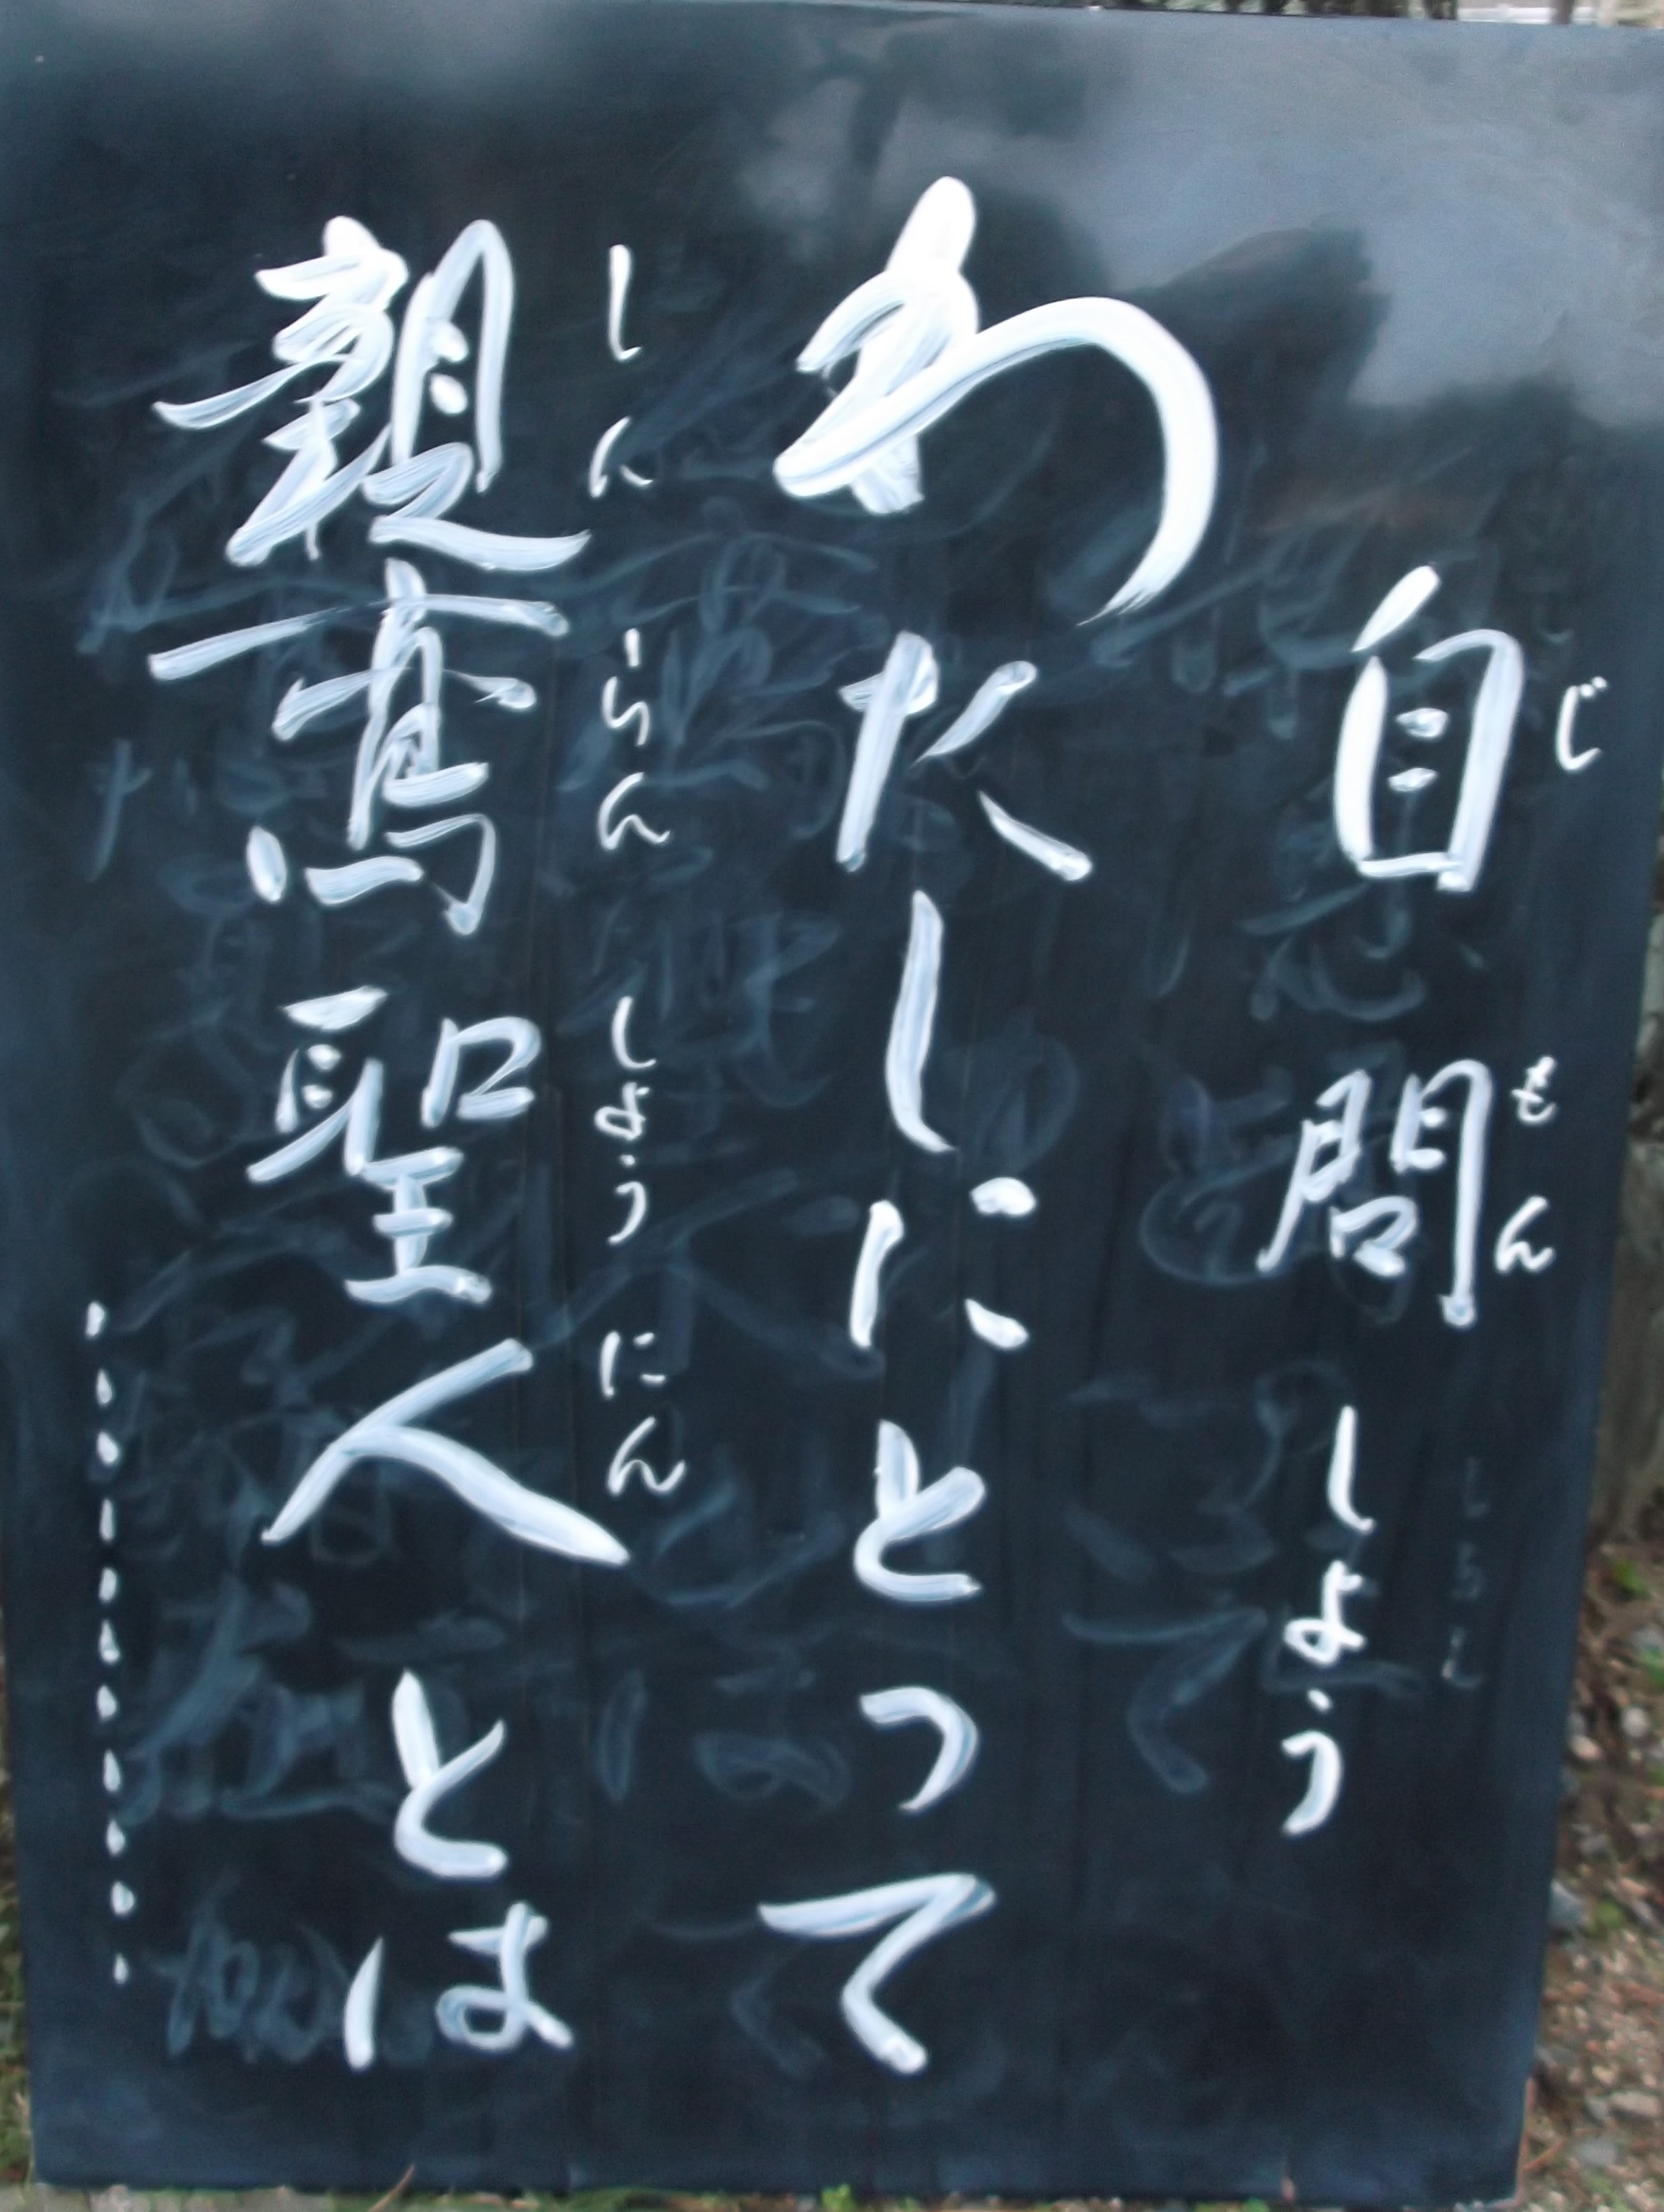 自問しよう
じもん
わたしにとって
親鸞聖人とは
しんらんしょうにん
…………